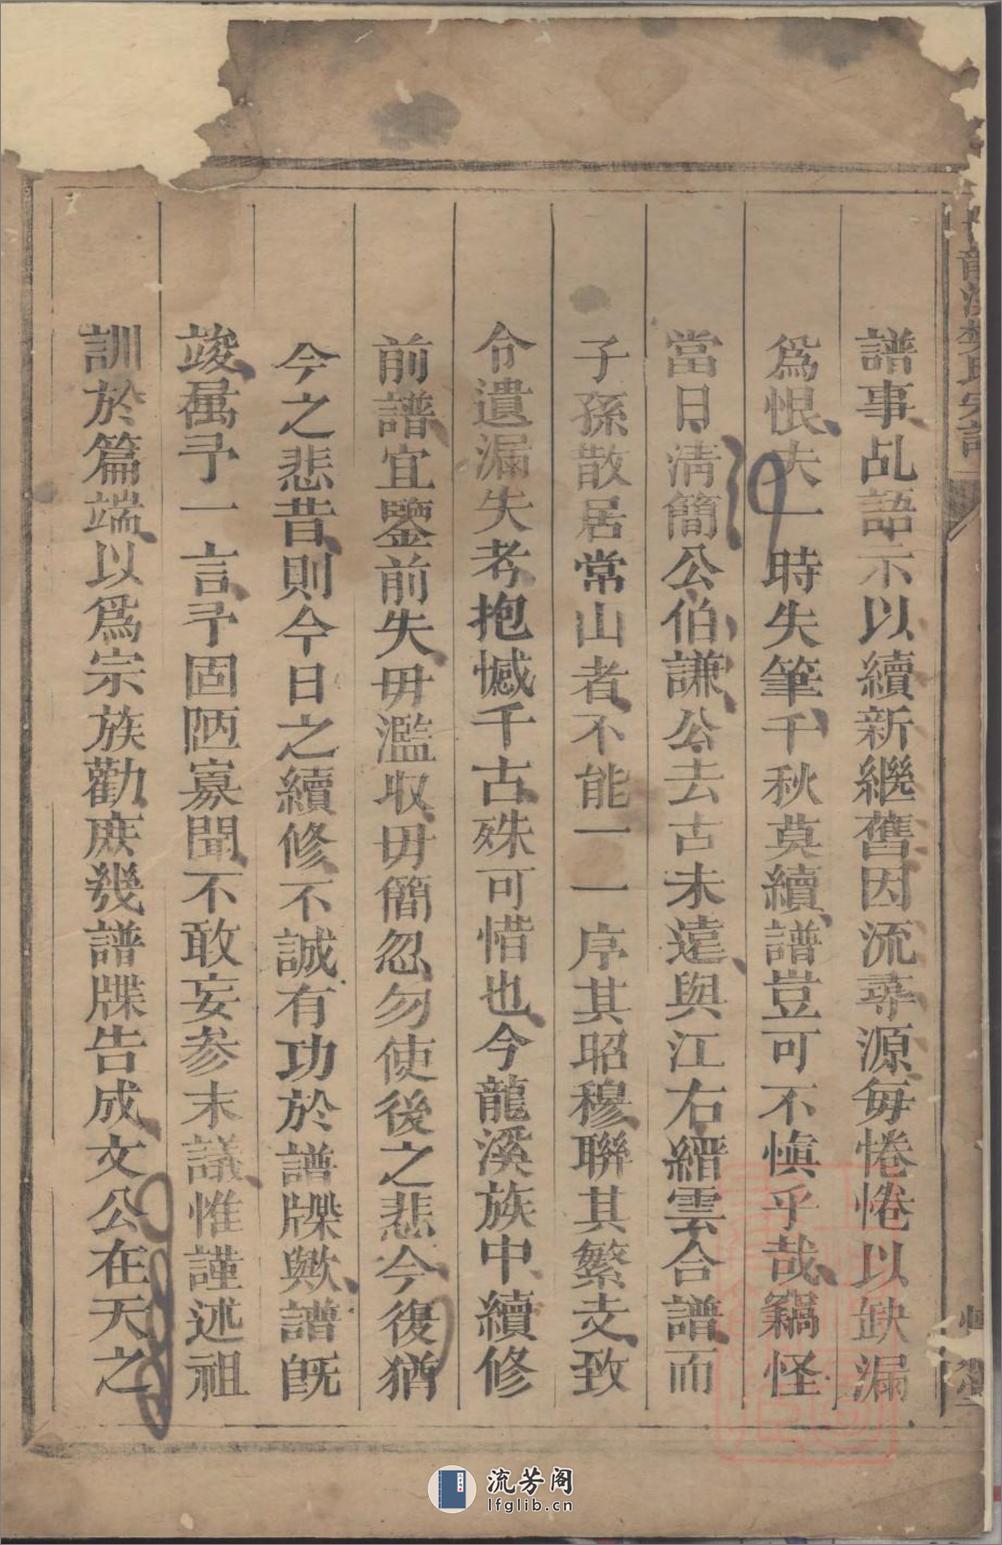 譜事乩語示以續新繼舊因流尋源每惓惓以缺漏
爲恨夫一時失筆千秋莫續譜豈可不慎乎哉竊怪
當日清簡公伯謙公去古未遠與江右縉雲合譜而
子孫散居常山者不能一一序其昭穆聯其繁支致
令遺漏失考抱憾千古殊可惜也今龍溪族中續修
前譜宜鑒前失毋濫收毋簡忽勿使後之悲今復猶
今之悲昔則今日之續修不誠有功於譜牒歟譜既
竣屬予一言予固陋寡聞不敢妄參末議惟謹述祖
訓於篇端以爲宗族勸庶幾譜牒告成文公在天之
19
0988
流芳阁
lfglib.cn